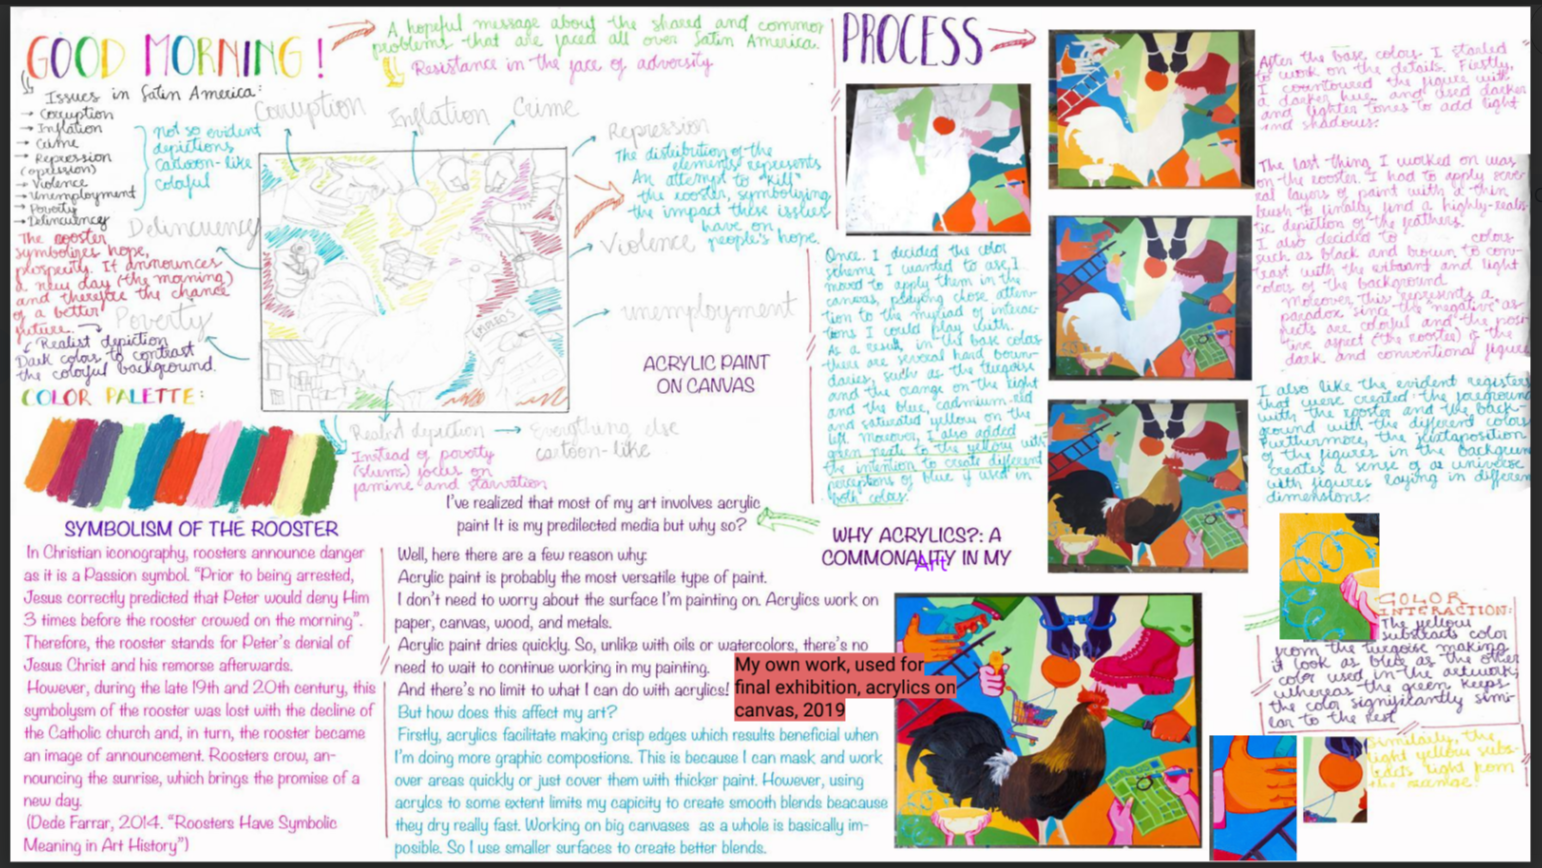 GOOD MORNING!
A hopeful message about the shared and common
problems that are faced all over Latin America.
Resistance in the face of adversity
Issues in Latin America:
→ Corruption
→ Inflation
→ Crime
→ Repression
(opression)
→ Violence
→ Unemployment
→ Poverty
→ Delincuency
not so evident
depictions
Cartoon-like
Colorful
Corruption
Inflation
Crime
Repression
The distribution of the
elements represents
An attempt to "kill"
the rooster, symbolizing
the impact these issues
have on
people's hope.
Delincuency
Violence
unemployment
Poverty
The rooster
symbolizes hope,
prosperity. It announces
a new day (the morning)
and therefore the chance
of a better
future.
Realist depiction
Dark colors to contrast
the colorful background.
COLOR PALETTE:
Realist depiction → Everything else
cartoon-like
Instead of poverty
(slums) focus on
famine and starvation
ACRYLIC PAINT
ON CANVAS
SYMBOLISM OF THE ROOSTER
In Christian iconography, roosters announce danger
as it is a Passion symbol. "Prior to being arrested,
Jesus correctly predicted that Peter would deny Him
3 times before the rooster crowed on the morning".
Therefore, the rooster stands for Peter's denial of
Jesus Christ and his remorse afterwards.
However, during the late 19th and 20th century, this
symbolysm of the rooster was lost with the decline of
the Catholic church and, in turn, the rooster became
an image of announcement. Roosters crow, an-
nouncing the sunrise, which brings the promise of a
new day.
(Dede Farrar, 2014. "Roosters Have Symbolic
Meaning in Art History")
I've realized that most of my art involves acrylic
paint It is my predilected media but why so?
WHY ACRYLICS?: A
COMMONALITY IN MY
Art
Well, here there are a few reason why:
Acrylic paint is probably the most versatile type of paint.
I don't need to worry about the surface I'm painting on. Acrylics work on
paper, canvas, wood, and metals.
Acrylic paint dries quickly. So, unlike with oils or watercolors, there's no
need to wait to continue working in my painting.
And there's no limit to what I can do with acrylics!
But how does this affect my art?
Firstly, acrylics facilitate making crisp edges which results beneficial when
I'm doing more graphic compostions. This is because I can mask and work
over areas quickly or just cover them with thicker paint. However, using
acrylcs to some extent limits my capicity to create smooth blends beacause
they dry really fast. Working on big canvases as a whole is basically im-
posible. So I use smaller surfaces to create better blends.
My own work, used for
final exhibition, acrylics on
canvas, 2019
PROCESS
Once, I decided the color
scheme I wanted to use, I
moved to apply them in the
canvas, paying close atten-
tion to the myriad of interac-
tions I could play with.
As a result, in the base colors
there are several hard boun-
daries, such as the turquoise
and the orange on the right
and the blue, cadmium red
and saturated yellow on the
left. Moreover, I also added
green next to the yellow with
the intention to create different
perceptions of blue if used in
both colors.
After the base colors, I started
to work on the details. Firstly,
I countoured the figure with
a darker hue, and used darker
and lighter tones to add light
and shadows.
The last thing I worked on was
on the rooster. I had to apply seve-
ral layers of paint with a thin
brush to finally find a highly-realis-
tic depiction of the feathers.
I also decided to colors
such as black and brown to con-
trast with the vibrant and light
colors of the background.
Moreover this represents a
paradox since the "negative" as-
pects are colorful and the posi-
tive aspect (the rooster) is the
dark and conventional figure
I also like the evident registers
that were created the foreground
with the rooster and the back-
ground with the different colors
Furthermore, the juxtaposition
of the figures in the background
creates a sense of a universe
with figures laying in different
dimensions.
COLOR
INTERACTION:
The yellow
substracts color
from the turquoise making
it look as blue as the other
color used in the artwork,
whereas the green keeps
the color significantly simi-
lar to the rest
Similarly, the
light yellow subs-
tracts light from
the orange.